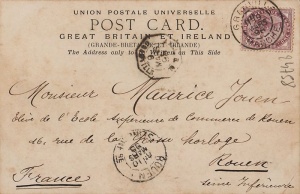 UNION POSTALE UNIVERSELLE
POST CARD.
GREAT BRITAIN ET IRLAND
(GRANDE-BRETAGNE ET IRLANDE)
The Address only to be Written on This Side
Monsieur Maurice Jouen
de l'Ecole Supérieure de Commerce de Rouen
16, rue de la horloge
Rouen
France
Seine Inférieure
ROUEN